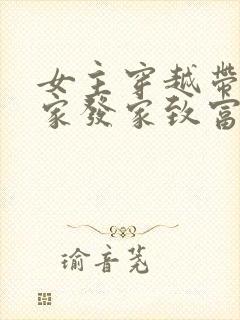 女主穿越帶
家發家致富
瑜音芜